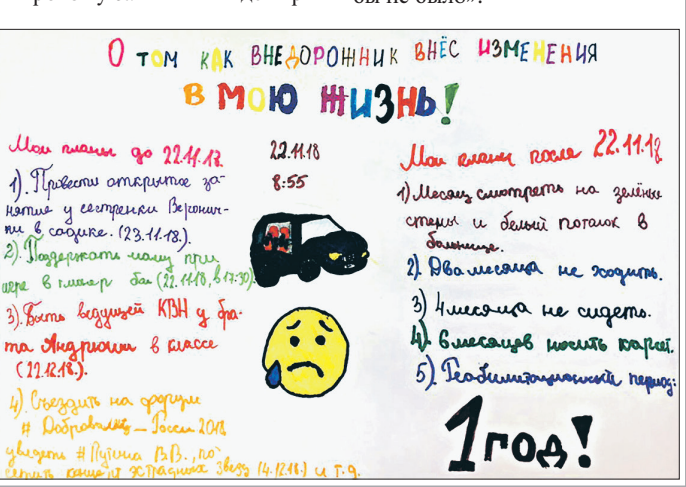 бы не было»!
О ТОМ КАК ВНЕДОРОЖНИК ВНЁС ИЗМЕНЕНИЯ
В МОЮ ЖИЗНЬ!
Мои планы до 22.11.18.
1). Провести открытое за-
нятие у сестренки Веронич-
ки в садике. (23.11.18.).
2). Поддержать маму при
игре в (22.11.18, в 17:30).
3). Быть ведущей КВН у бра-
та Андрюши в классе
(22.12.18.).
4). Съездить на форум
# Доброволец – России 2018
увидеть # Путина В.В., по-
звёзд (4.12.18.) и т.д.
22.11.18
8:55
Мои планы после 22.11.18
1) Месяц смотреть на зелёные
стены и белый потолок в
больнице.
2). Два месяца не ходить.
3) 4 месяца не сидеть.
4). 6 месяцев носить карсет.
5). Реабилитационный период:
1 год!